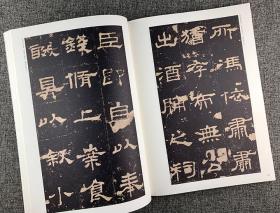 所馮依肅肅
猶存而無公
出酒脯之祠
臣即自以奉
錢脩上案食
醊具以叙小